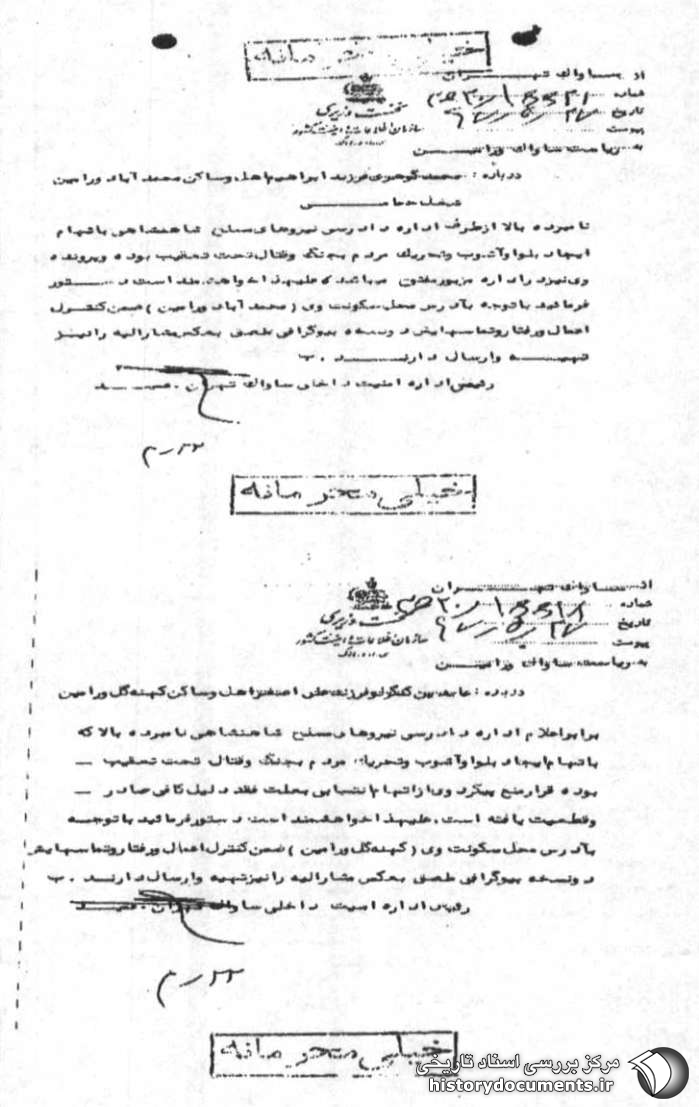 خیلی محرمانه
از ساواک تهران
شماره
نخست وزیری
تاریخ
سازمان اطلاعات و امنیت کشور
پیوست
به ریاست ساواک ورامین
درباره : محمد گوهری فرزند ابراهیم اهل و ساکن محمد آباد ورامین
نامبرده بالا از طرف اداره دادرسی نیروهای مسلح شاهنشاهی باتهام
ایجاد بلوا و آشوب و تحریک مردم بجنگ و قتال تحت تعقیب بوده و پرونده
وی نیز در اداره مزبور مفتوح میباشد علیهذا خواهشمند است دستور
فرمائید باتوجه بآدرس محل سکونت وی ( محمد آباد ورامین ) ضمن کنترل
اعمال و رفتار و تماسهایش دو نسخه بیوگرافی ملصق بعکس مشارالیه را نیز
تهیه و ارسال دارند . ب
رئیس اداره امنیت داخلی ساواک تهران .
خیلی محرمانه
از ساواک تهران
شماره
نخست وزیری
تاریخ
سازمان اطلاعات و امنیت کشور
پیوست
به ریاست ساواک ورامین
درباره : فرزند علی اصغر اهل و ساکن کهنه گل ورامین
برابر اعلام اداره دادرسی نیروهای مسلح شاهنشاهی نامبرده بالا که
باتهام ایجاد بلوا و آشوب و تحریک مردم بجنگ و قتال تحت تعقیب ـ
بوده قرار منع پیگرد وی از اتهام انتسابی بعلت فقد دلیل کافی صادر ـ
و قطعیت یافته است . علیهذا خواهشمند است دستور فرمائید باتوجه
بآدرس محل سکونت وی ( کهنه گل ورامین ) ضمن کنترل اعمال و رفتار و تماسهایش
دو نسخه بیوگرافی ملصق بعکس مشارالیه را نیز تهیه و ارسال دارند . ب
رئیس اداره امنیت داخلی ساواک تهران .
خیلی محرمانه
مرکز بررسی اسناد تاریخی
historydocuments.ir